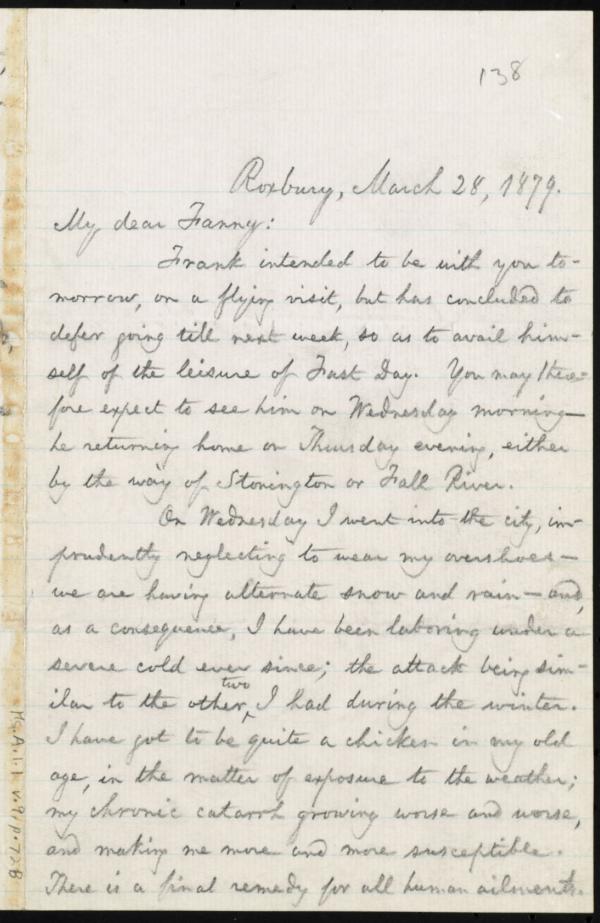 138
Roxbury, March 28, 1879.
My dear Fanny:
Frank intended to be with you to-
morrow, on a flying visit, but has concluded to
defer going till next week, so as to avail him-
self of the leisure of Fast Day. You may there-
fore expect to see him on Wednesday morning—
he returning home on Thursday evening, either
by the way of Stonington or Fall River.
On Wednesday I went into the city, im-
prudently neglecting to wear my overshoes—
we are having alternate snow and rain—and,
as a consequence, I have been laboring under a
severe cold ever since; the attack being sim-
two
ilar to the other‸ I had during the winter.
I have got to be quite a chicken in my old
age, in the matter of exposure to the weather;
my chronic catarrh growing worse and worse,
and making me more and more susceptible.
There is a final remedy for all human ailments.
Ms.A.1.1 v.9, p.72B